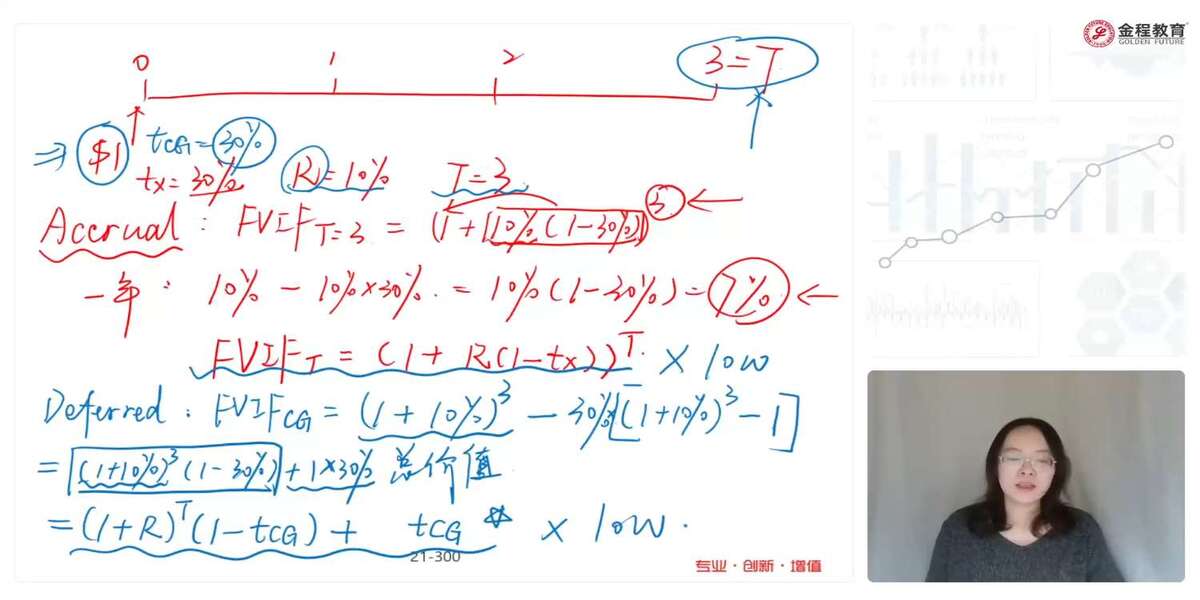 金程教育
GOLDEN FUTURE
0 1 2 3=T
⇒ $1 tCG=30%
tx=30% R=10% T=3
Accrual: FVIF_{T=3} = (1+[10%(1-30%)])^3 ←
一年: 10% - 10%×30% = 10%(1-30%) = 7% ←
FVIF_T = (1+R(1-tx))^T × 10w
Deferred: FVIF_{CG} = (1+10%)^3 - 30%[(1+10%)^3-1]
= (1+10%)^3(1-30%) + 1×30% 总价值
= (1+R)^T(1-tCG) + tCG × 10w.
21-300
专业·创新·增值